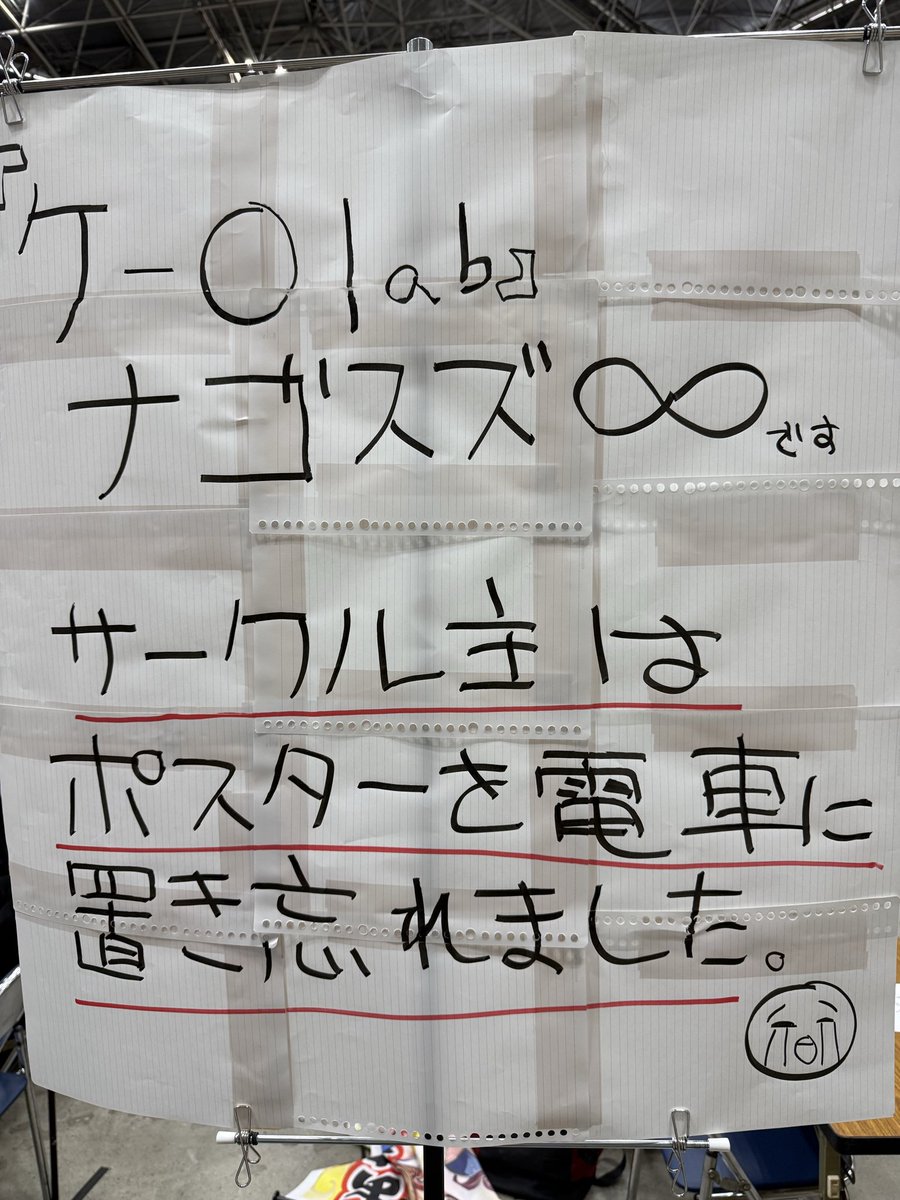 『ケー○labs』
ナゴスズ∞です
サークル主は
ポスターを電車に
置き忘れました。